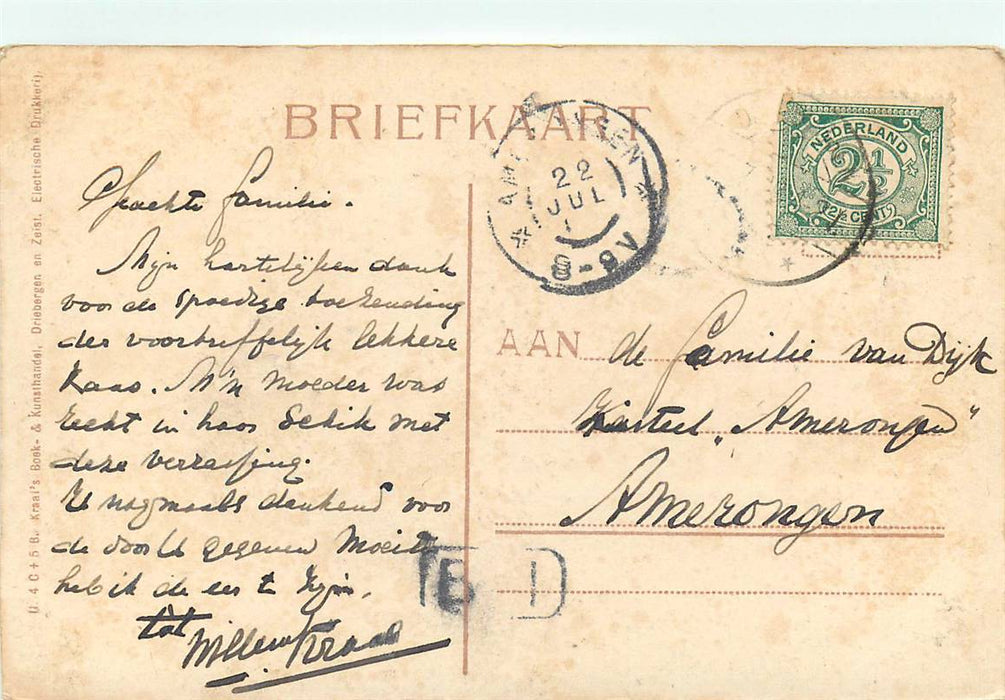 BRIEFKAART
Geachte familie.
Mijn hartelijken dank
voor de spoedige toezending
der voortreffelijk lekkere
Kaas. M'n moeder was
echt in haar schik met
deze verrassing.
U nogmaals dankend voor
de door U gegeven Moeite
heb ik de eer te zijn,
tat
Willem Kraal
AAN de familie van Dijk
Kasteel „Amerongen"
Amerongen
NEDERLAND
2½
(2½ CENT)
22
JUL
8-9V
B D
U. 4 C + 5 B. Kraal's Boek- & Kunsthandel, Driebergen en Zeist. Electrische Drukkerij.